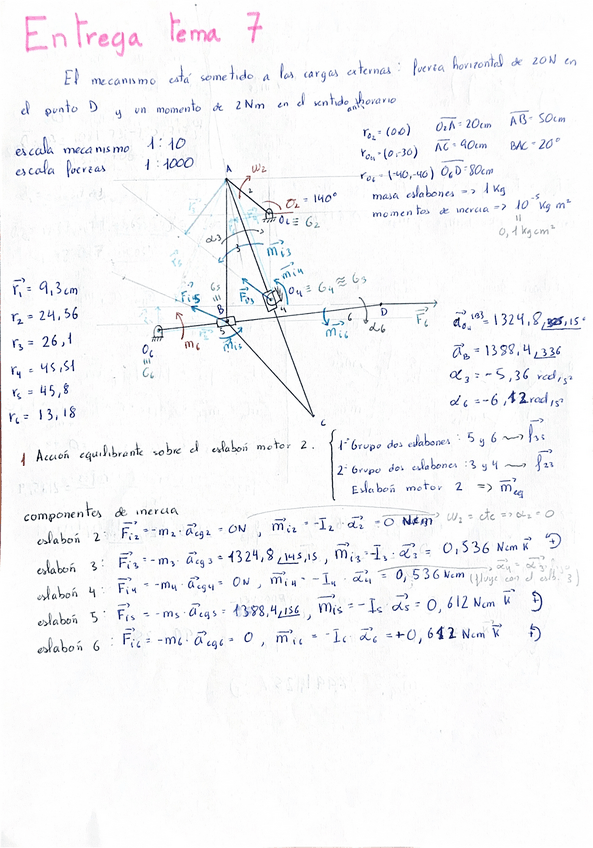 Entrega tema 7
El mecanismo está sometido a las cargas externas: fuerza horizontal de 20N en
el punto D y un momento de 2Nm en el sentido antihorario
escala mecanismo 1:10
escala fuerzas 1:1000
r₀₂ = (0,0) O₂A = 20cm AB = 50cm
r₀₄ = (0,-30) AC = 90cm BAC = 20°
r₀₆ = (-40,-40) O₆D = 80cm
masa eslabones => 1 Kg
momentos de inercia => 10⁻⁵ Kg m²
0,1 kg cm²
A
ω₂
2
θ₂ = 140°
O₂ ≡ G₂
α₃
3
m⃗i3
m⃗i4
O₄ ≡ G₄ ≡ G₃
4
G₅
F⃗i5
F⃗i3
B
5
m⃗i5
m₆
O₆
G₆
6
D
α₆
m⃗i6
F⃗₆
C
r⃗₁ = 9,3cm
r₂ = 24,56
r₃ = 26,1
r₄ = 45,51
r₅ = 45,8
r₆ = 13,18
a⃗B = 1388,4 ∠336
α₃ = -5,36 rad/s²
α₆ = -6,12 rad/s²
1 Acción equilibrante sobre el eslabón motor 2.
1º Grupo dos eslabones: 5 y 6
2º Grupo dos eslabones: 3 y 4
Eslabón motor 2 => m⃗eq
componentes de inercia
eslabón 2: F⃗i2 = -m₂ · a⃗cg2 = 0N, m⃗i2 = -I₂ · α⃗₂ = 0 Ncm ω₂ = cte => α₂ = 0
eslabón 3: F⃗i3 = -m₃ · a⃗cg3 = 1324,8 ∠145,15, m⃗i3 = -I₃ · α⃗₃ = 0,536 Ncm k⃗
eslabón 4: F⃗i4 = -m₄ · a⃗cg4 = 0N, m⃗i4 = -I₄ · α⃗₄ = 0,536 Ncm
eslabón 5: F⃗i5 = -m₅ · a⃗cg5 = 1388,4 ∠156, m⃗i5 = -I₅ · α⃗₅ = 0,612 Ncm k⃗
eslabón 6: F⃗i6 = -m₆ · a⃗cg6 = 0, m⃗i6 = -I₆ · α⃗₆ = +0,612 Ncm k⃗